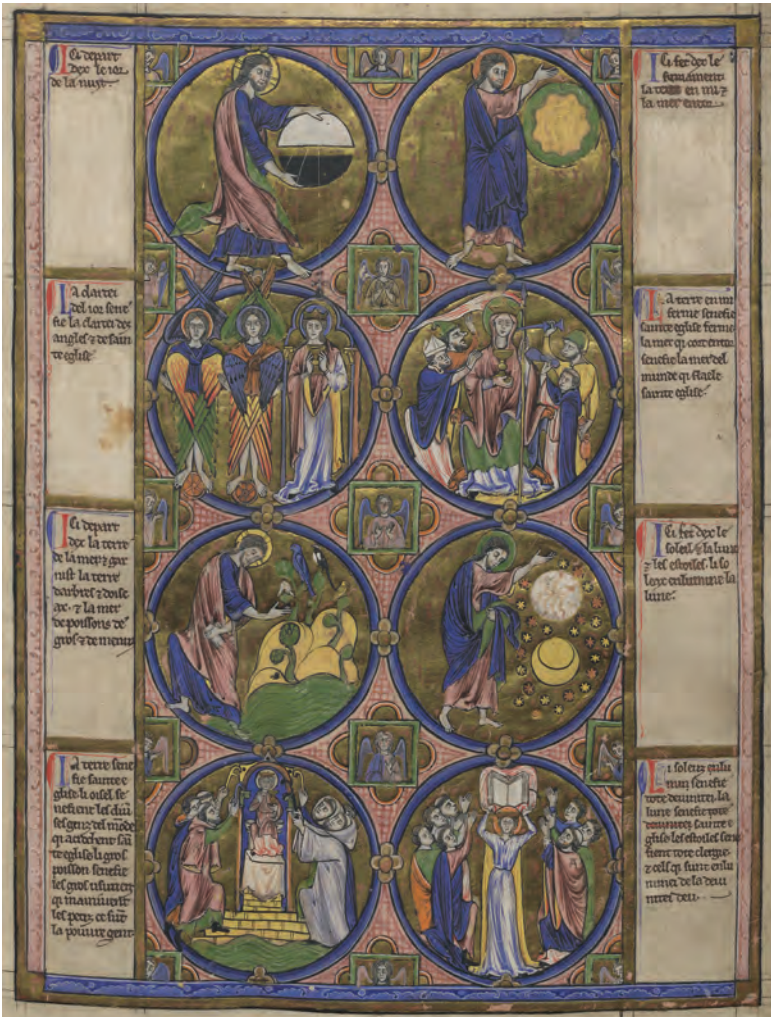 Ci depart
dex le ior
de la nuyt.
La clartei
del ior sene
fie la clartei des
angles & de sain
te eglise
Ci depart
dex la terre
de la mer & gar
nist la terre
darbres & doise
ax. & la mer
de poissons de
gros & de menuz
La terre sene
fie sainte e
glise li oisel se
nefient les diu
ses genz del mōde
qi
te eglise li gros
poisson senefie
les gros usuriers
qi maniuvent
les petiz ce sūt
la pouvre gent.
Ci fet dex le
firmament
la terre en mi &
la mer entor.
La terre en mi
ferme senefie
sainte eglise ferme
la mer qi cort entor
senefie la mer del
munde qi flaele
sainte eglise.
Ci fet dex le
soleil & la lune
& les estoiles. li so
lex enlumine la
lune.
Li soleuz enlu
mine senefie
tote deuinitei. la
lune senefie tote
sainte e
glise les estoiles sene
fient tote clergie
& cels qi sunt enlu
minei de la deui
nitei deu.